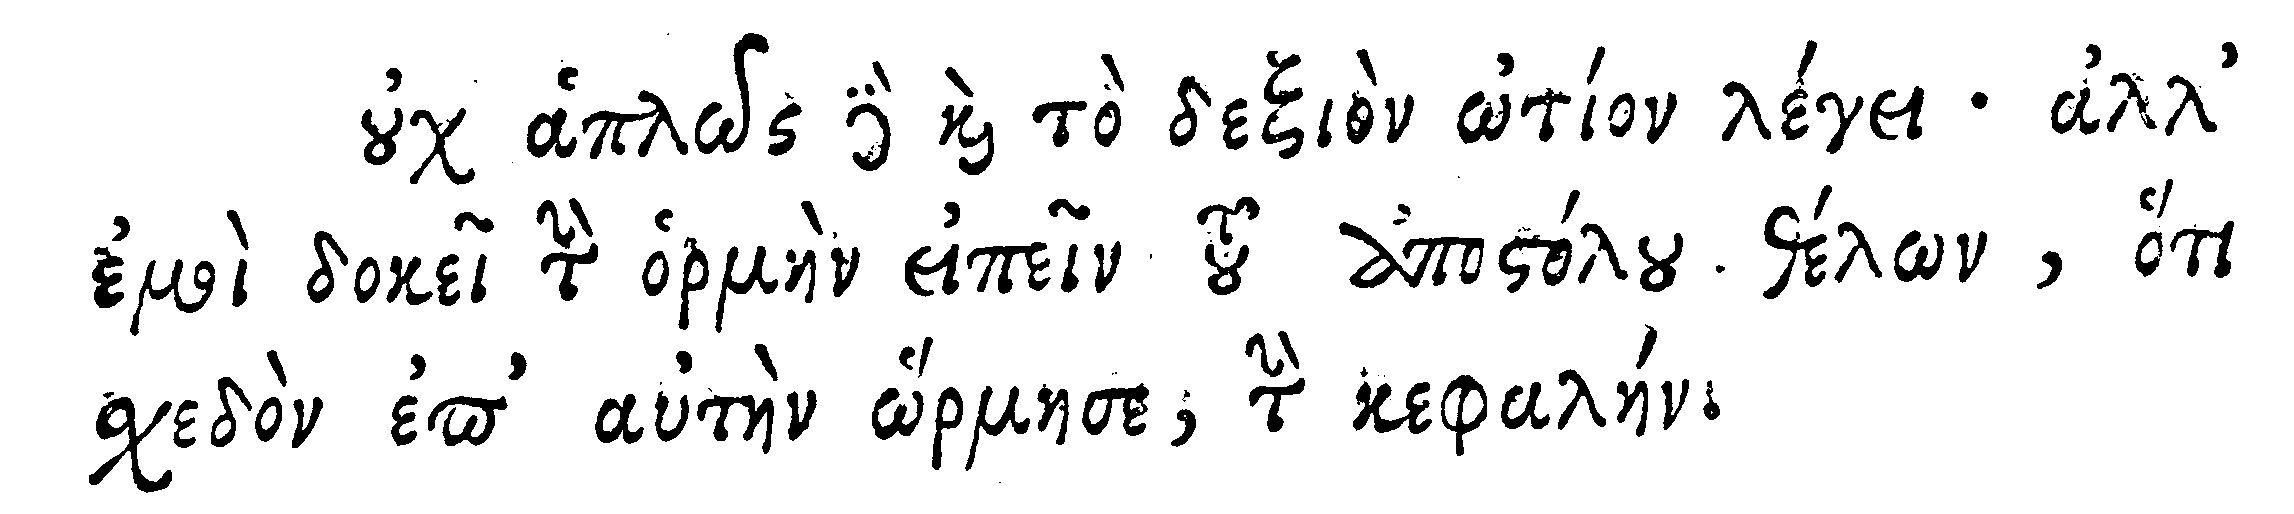 οὐχ ἁπλῶς δὲ καὶ τὸ δεξιὸν ὠτίον λέγει · ἀλλ’
ἐμοὶ δοκεῖ τὴν ὁρμὴν εἰπεῖν τοῦ ἀποστόλου . θέλων , ὅτι
σχεδὸν ἐπ’ αὐτὴν ὥρμησε, τὴν κεφαλήν.